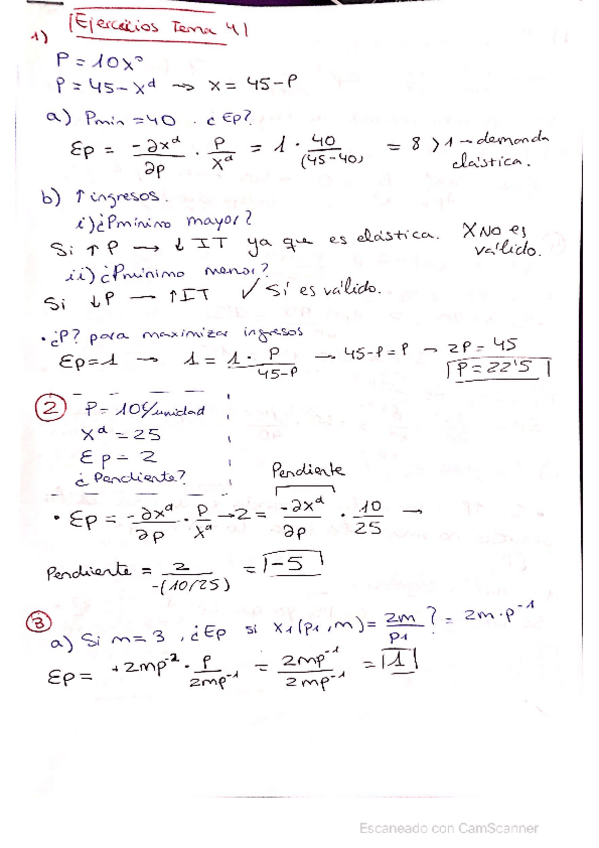 Ejercicios Tema 4
1)
P = 10x⁰
P = 45 - xᵈ → x = 45 - P
a) Pmin = 40 . ¿Ep?
Ep = -∂xᵈ/∂p · P/xᵈ = 1 · 40/(45-40) = 8 > 1 → demanda elástica.
b) ↑ ingresos.
i) ¿Pmínimo mayor?
Si ↑ P → ↓ IT ya que es elástica. X No es válido.
ii) ¿Pmínimo menor?
Si ↓P → ↑ IT ✓ Sí es válido.
· ¿P? para maximizar ingresos
Ep = 1 → 1 = 1 · P/45-P → 45-P = P → 2P = 45
P = 22'5
2 P = 10€/unidad
xᵈ = 25
Ep = 2
¿Pendiente?
Pendiente
· Ep = -∂xᵈ/∂p · P/xᵈ → 2 = -∂xᵈ/∂p · 10/25 →
Pendiente = 2/-(10/25) = -5
3
a) Si m = 3 , ¿Ep si x₁(p₁, m) = 2m/p₁ ? = 2m · p⁻¹
Ep = +2mp⁻² · P/2mp⁻¹ = 2mp⁻¹/2mp⁻¹ = 1
Escaneado con CamScanner